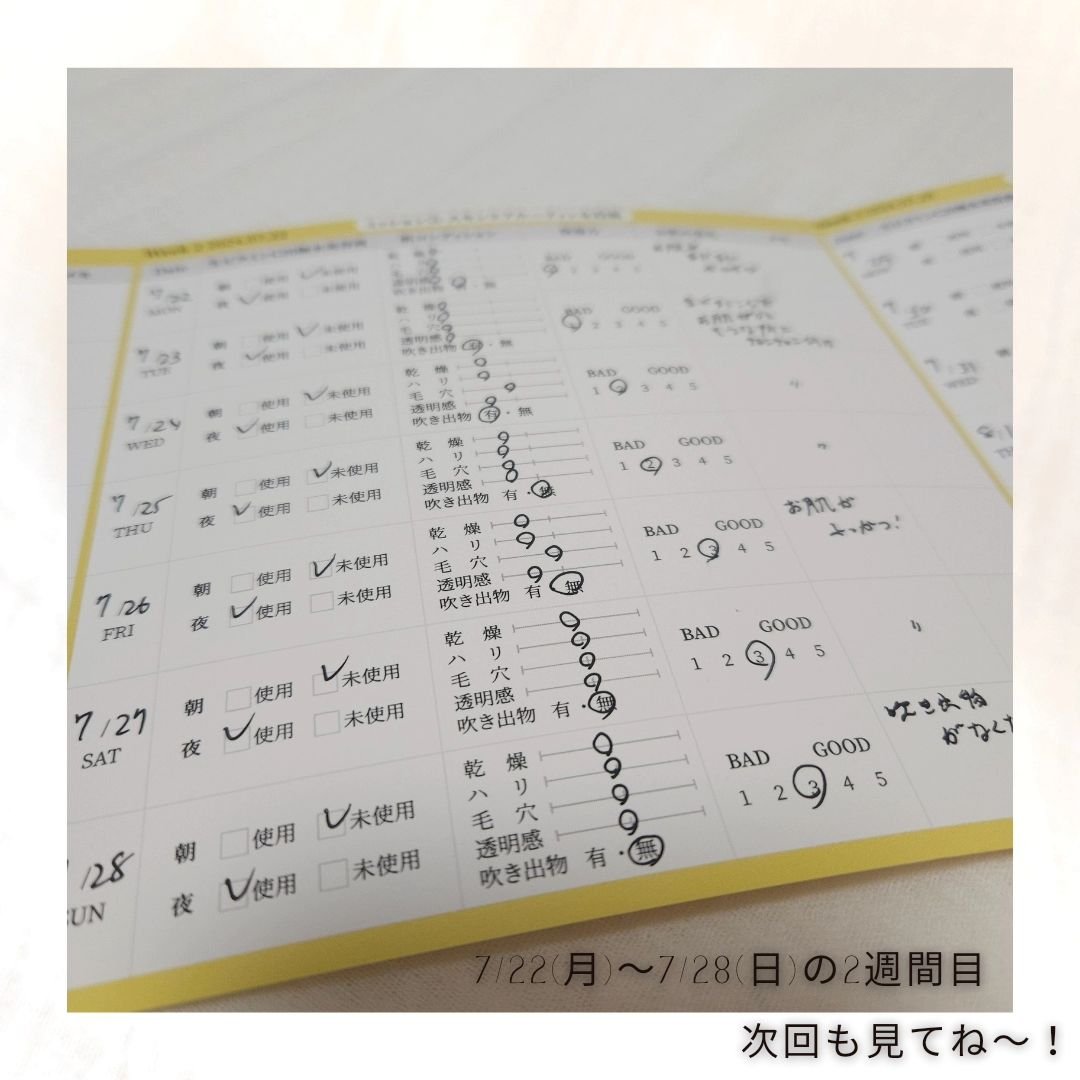 7/22
MON
朝 使用 未使用
夜 使用 未使用
毛穴
透明感
吹き出物 有・無
BAD GOOD
1 2 3 4 5
7/23
TUE
朝 使用 未使用
夜 使用 未使用
乾燥
ハリ
毛穴
透明感
吹き出物 有・無
BAD GOOD
1 2 3 4 5
7/24
WED
朝 使用 未使用
夜 使用 未使用
乾燥
ハリ
毛穴
透明感
吹き出物 有・無
BAD GOOD
1 2 3 4 5
7/25
THU
朝 使用 未使用
夜 使用 未使用
乾燥
ハリ
毛穴
透明感
吹き出物 有・無
BAD GOOD
1 2 3 4 5
7/26
FRI
朝 使用 未使用
夜 使用 未使用
乾燥
ハリ
毛穴
透明感
吹き出物 有 無
BAD GOOD
1 2 3 4 5
お肌が
7/27
SAT
朝 使用 未使用
夜 使用 未使用
乾燥
ハリ
毛穴
透明感
吹き出物 有・無
BAD GOOD
1 2 3 4 5
/28
SUN
朝 使用 未使用
夜 使用 未使用
乾燥
ハリ
毛穴
透明感
吹き出物 有・無
BAD GOOD
1 2 3 4 5
吹き出物
がなくな
7/31
WED
7/22(月)〜7/28(日)の2週間目
次回も見てね〜！